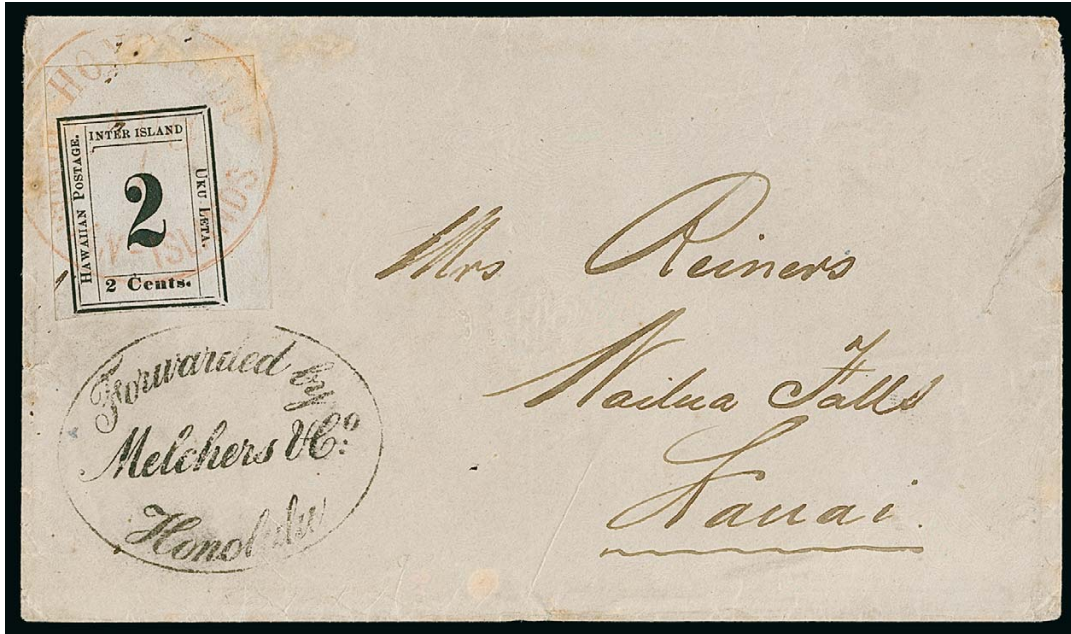 HONOLULU
ISLANDS
INTER ISLAND
HAWAIIAN POSTAGE.
UKU LETA.
2
2 Cents.
Forwarded by
Melchers & Co.
Honolulu
Mrs Reiners
Wailua Falls
Kauai.